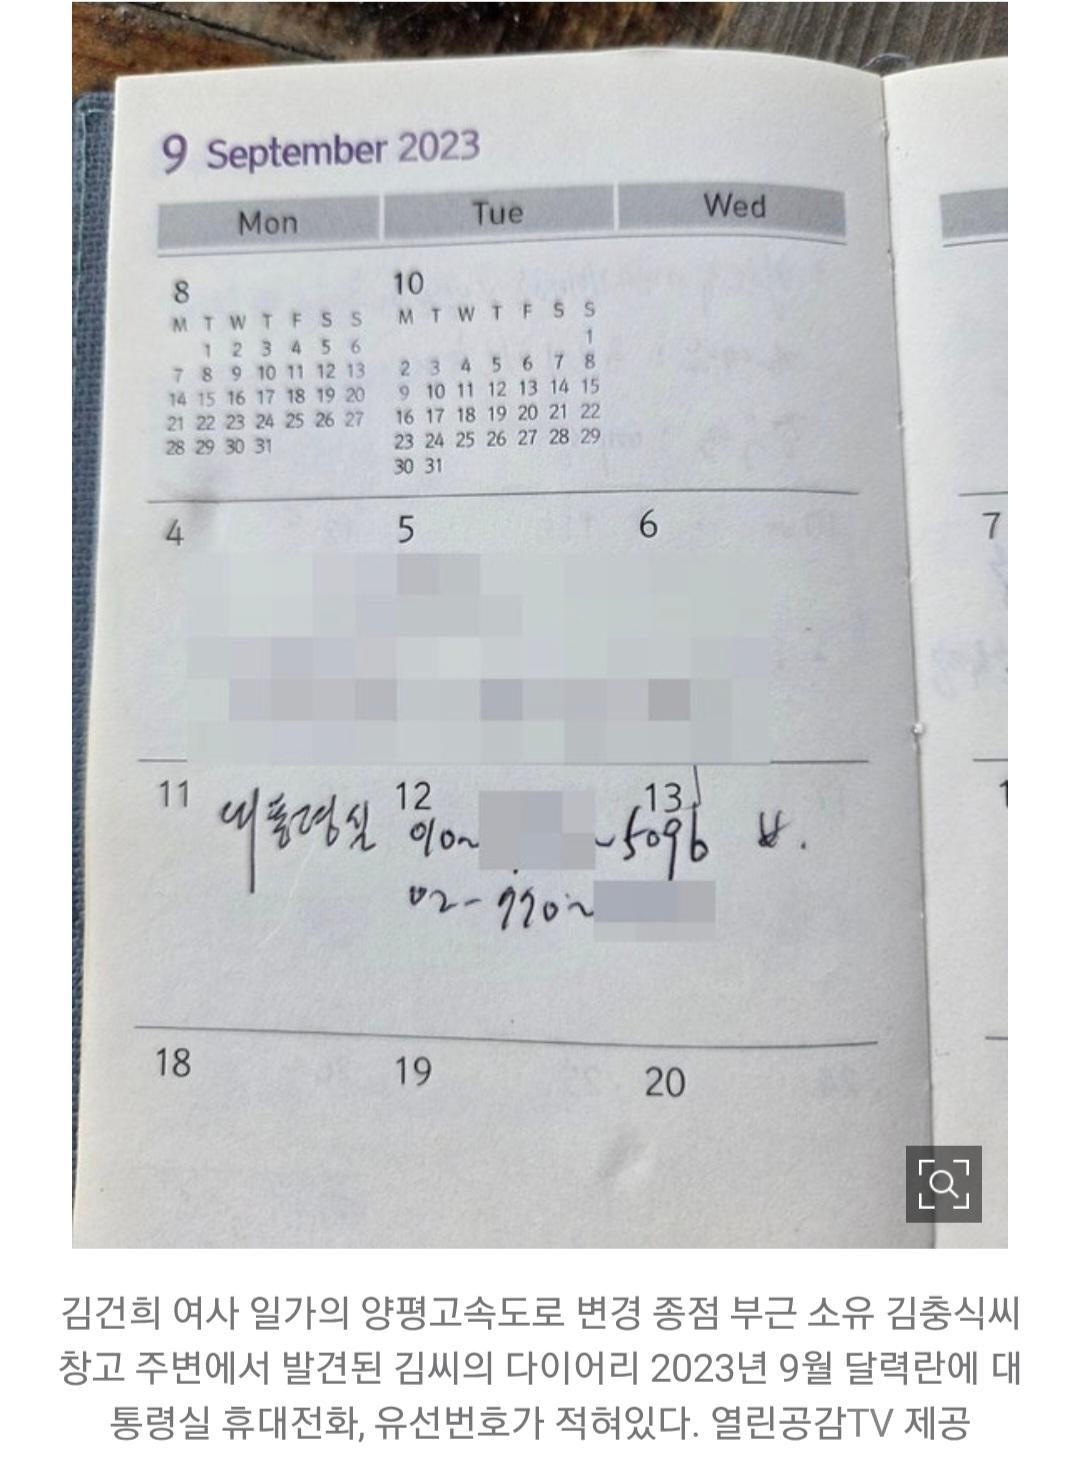 9 September 2023
Mon Tue Wed
8
M T W T F S S
1 2 3 4 5 6
7 8 9 10 11 12 13
14 15 16 17 18 19 20
21 22 23 24 25 26 27
28 29 30 31
10
M T W T F S S
1
2 3 4 5 6 7 8
9 10 11 12 13 14 15
16 17 18 19 20 21 22
23 24 25 26 27 28 29
30 31
4 5 6 7
11 12 13 1
대통령실 010~ ~5096
02-770~
18 19 20
김건희 여사 일가의 양평고속도로 변경 종점 부근 소유 김충식씨
창고 주변에서 발견된 김씨의 다이어리 2023년 9월 달력란에 대
통령실 휴대전화, 유선번호가 적혀있다. 열린공감TV 제공